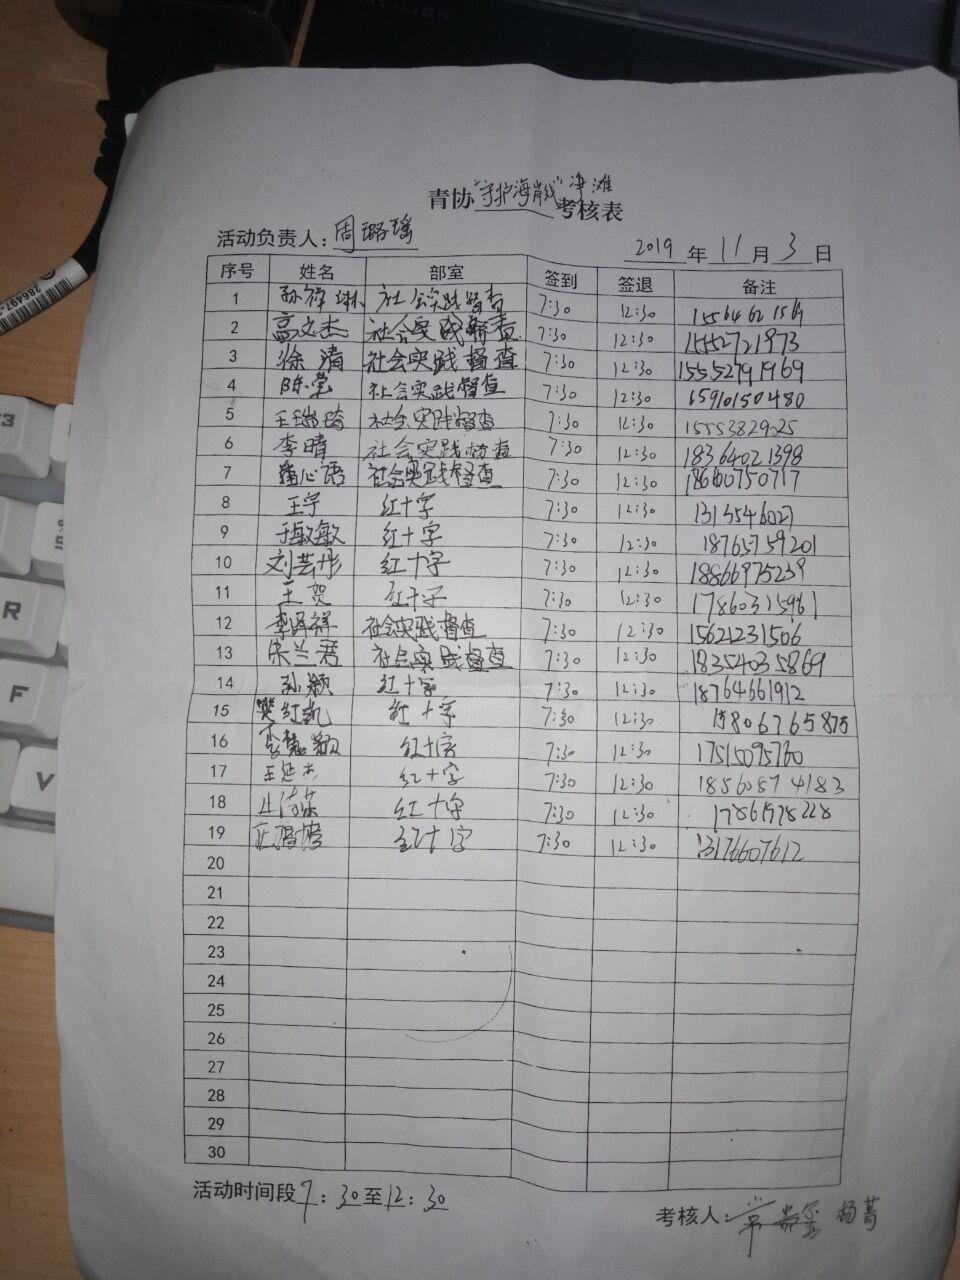 PAVILION
青协"守护海岸线"净滩考核表
活动负责人：周璐瑶 2019 年 11 月 3 日
序号 姓名 部室 签到 签退 备注
1 社会实践督查 7:30 12:30
2 高文杰 社会实践督查 7:30 12:30 1552721973
3 徐清 社会实践督查 7:30 12:30 15552791969
4 陈莹 社会实践督查 7:30 12:30 15910150480
5 王瑞琦 社会实践督查 7:30 12:30 15553829025
6 李晴 社会实践督查 7:30 12:30 18364021398
7 心语 社会实践督查 7:30 12:30 18660750717
8 王宇 红十字 7:30 12:30 1313546027
9 于敏敏 红十字 7:30 12:30 18765759201
10 刘芸彤 红十字 7:30 12:30 18866975239
11 王贺 红十字 7:30 12:30 17860315961
12 李泽祥 社会实践督查 7:30 12:30 15621231506
13 宋兰君 社会实践督查 7:30 12:30 18354035869
14 孙颖 红十字 7:30 12:30 18764661912
15 樊红凯 红十字 7:30 12:30 15806765875
16 李慧颖 红十字 7:30 12:30 17515095760
17 王延杰 红十字 7:30 12:30 18560574183
18 红十字 7:30 12:30 17861978228
19 红十字 7:30 12:30 13176607612
20
21
22
23
24
25
26
27
28
29
30
活动时间段 7：30至12：30
考核人： 杨菁
R
F
V